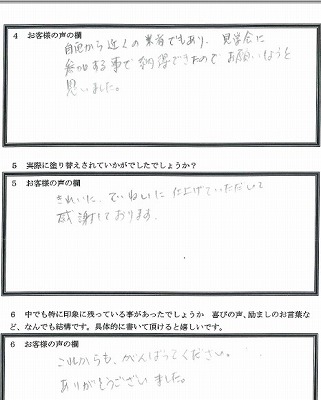 4 お客様の声の欄
自宅から近くの業者でもあり、見学会に
参加する事で納得できたのでお願いしようと
思いました。
5 実際に塗り替えされていかがでしたでしょうか？
5 お客様の声の欄
きれいに、ていねいに仕上げていただいて
感謝しております。
6 中でも特に印象に残っている事があったでしょうか 喜びの声、励ましのお言葉な
ど、なんでも結構です。具体的に書いて頂けると嬉しいです。
6 お客様の声の欄
これからも、がんばってください。
ありがとうございました。